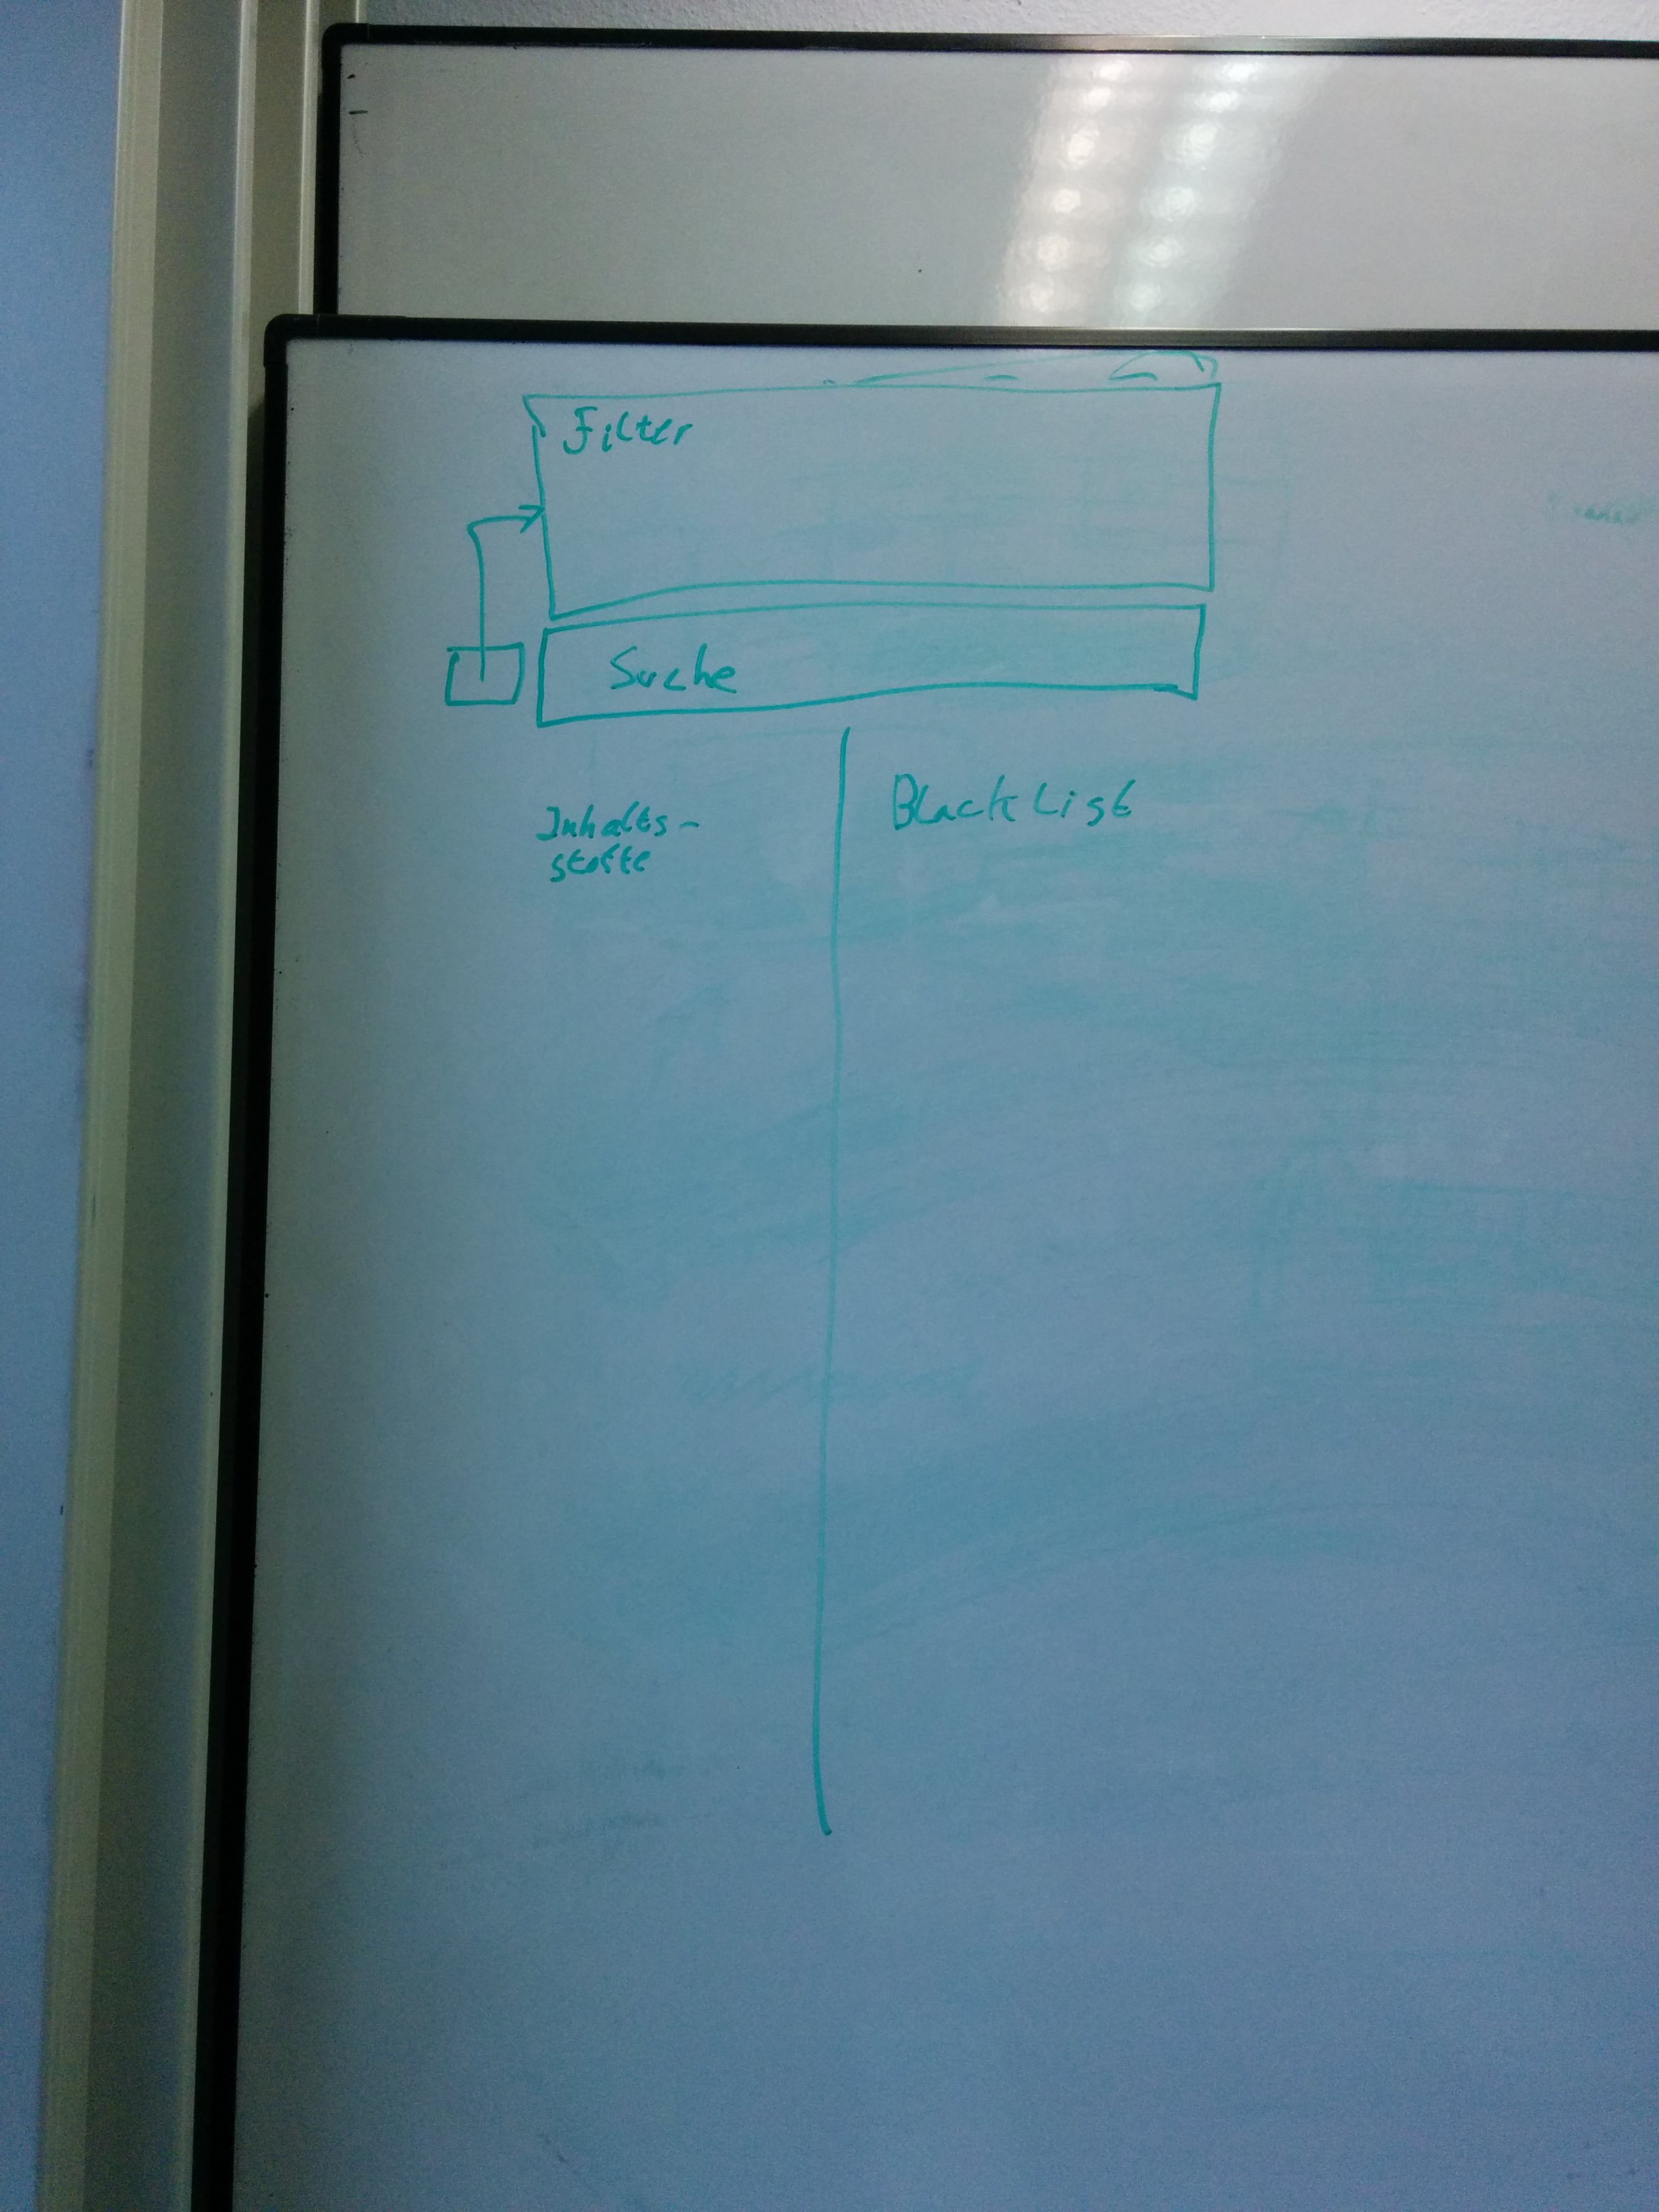 Filter
Suche
Inhalts-
stoffe
BlackList